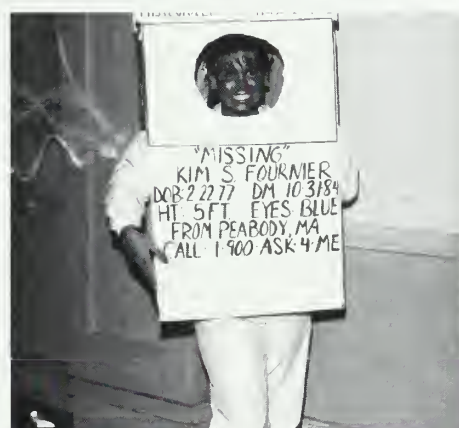 "MISSING"
KIM S. FOURNIER
DOB: 2 22 77 DM 10·31 84
HT: 5FT. EYES BLUE
FROM PEABODY, MA
CALL·1·900·ASK·4·ME